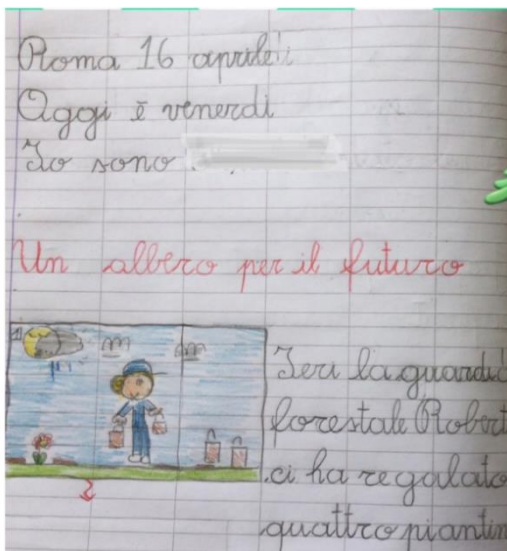 Roma 16 aprile
Oggi è venerdi
Io sono
Un albero per il futuro
1
Ieri la guardia
forestale Robert
ci ha regalato
quattro piantin